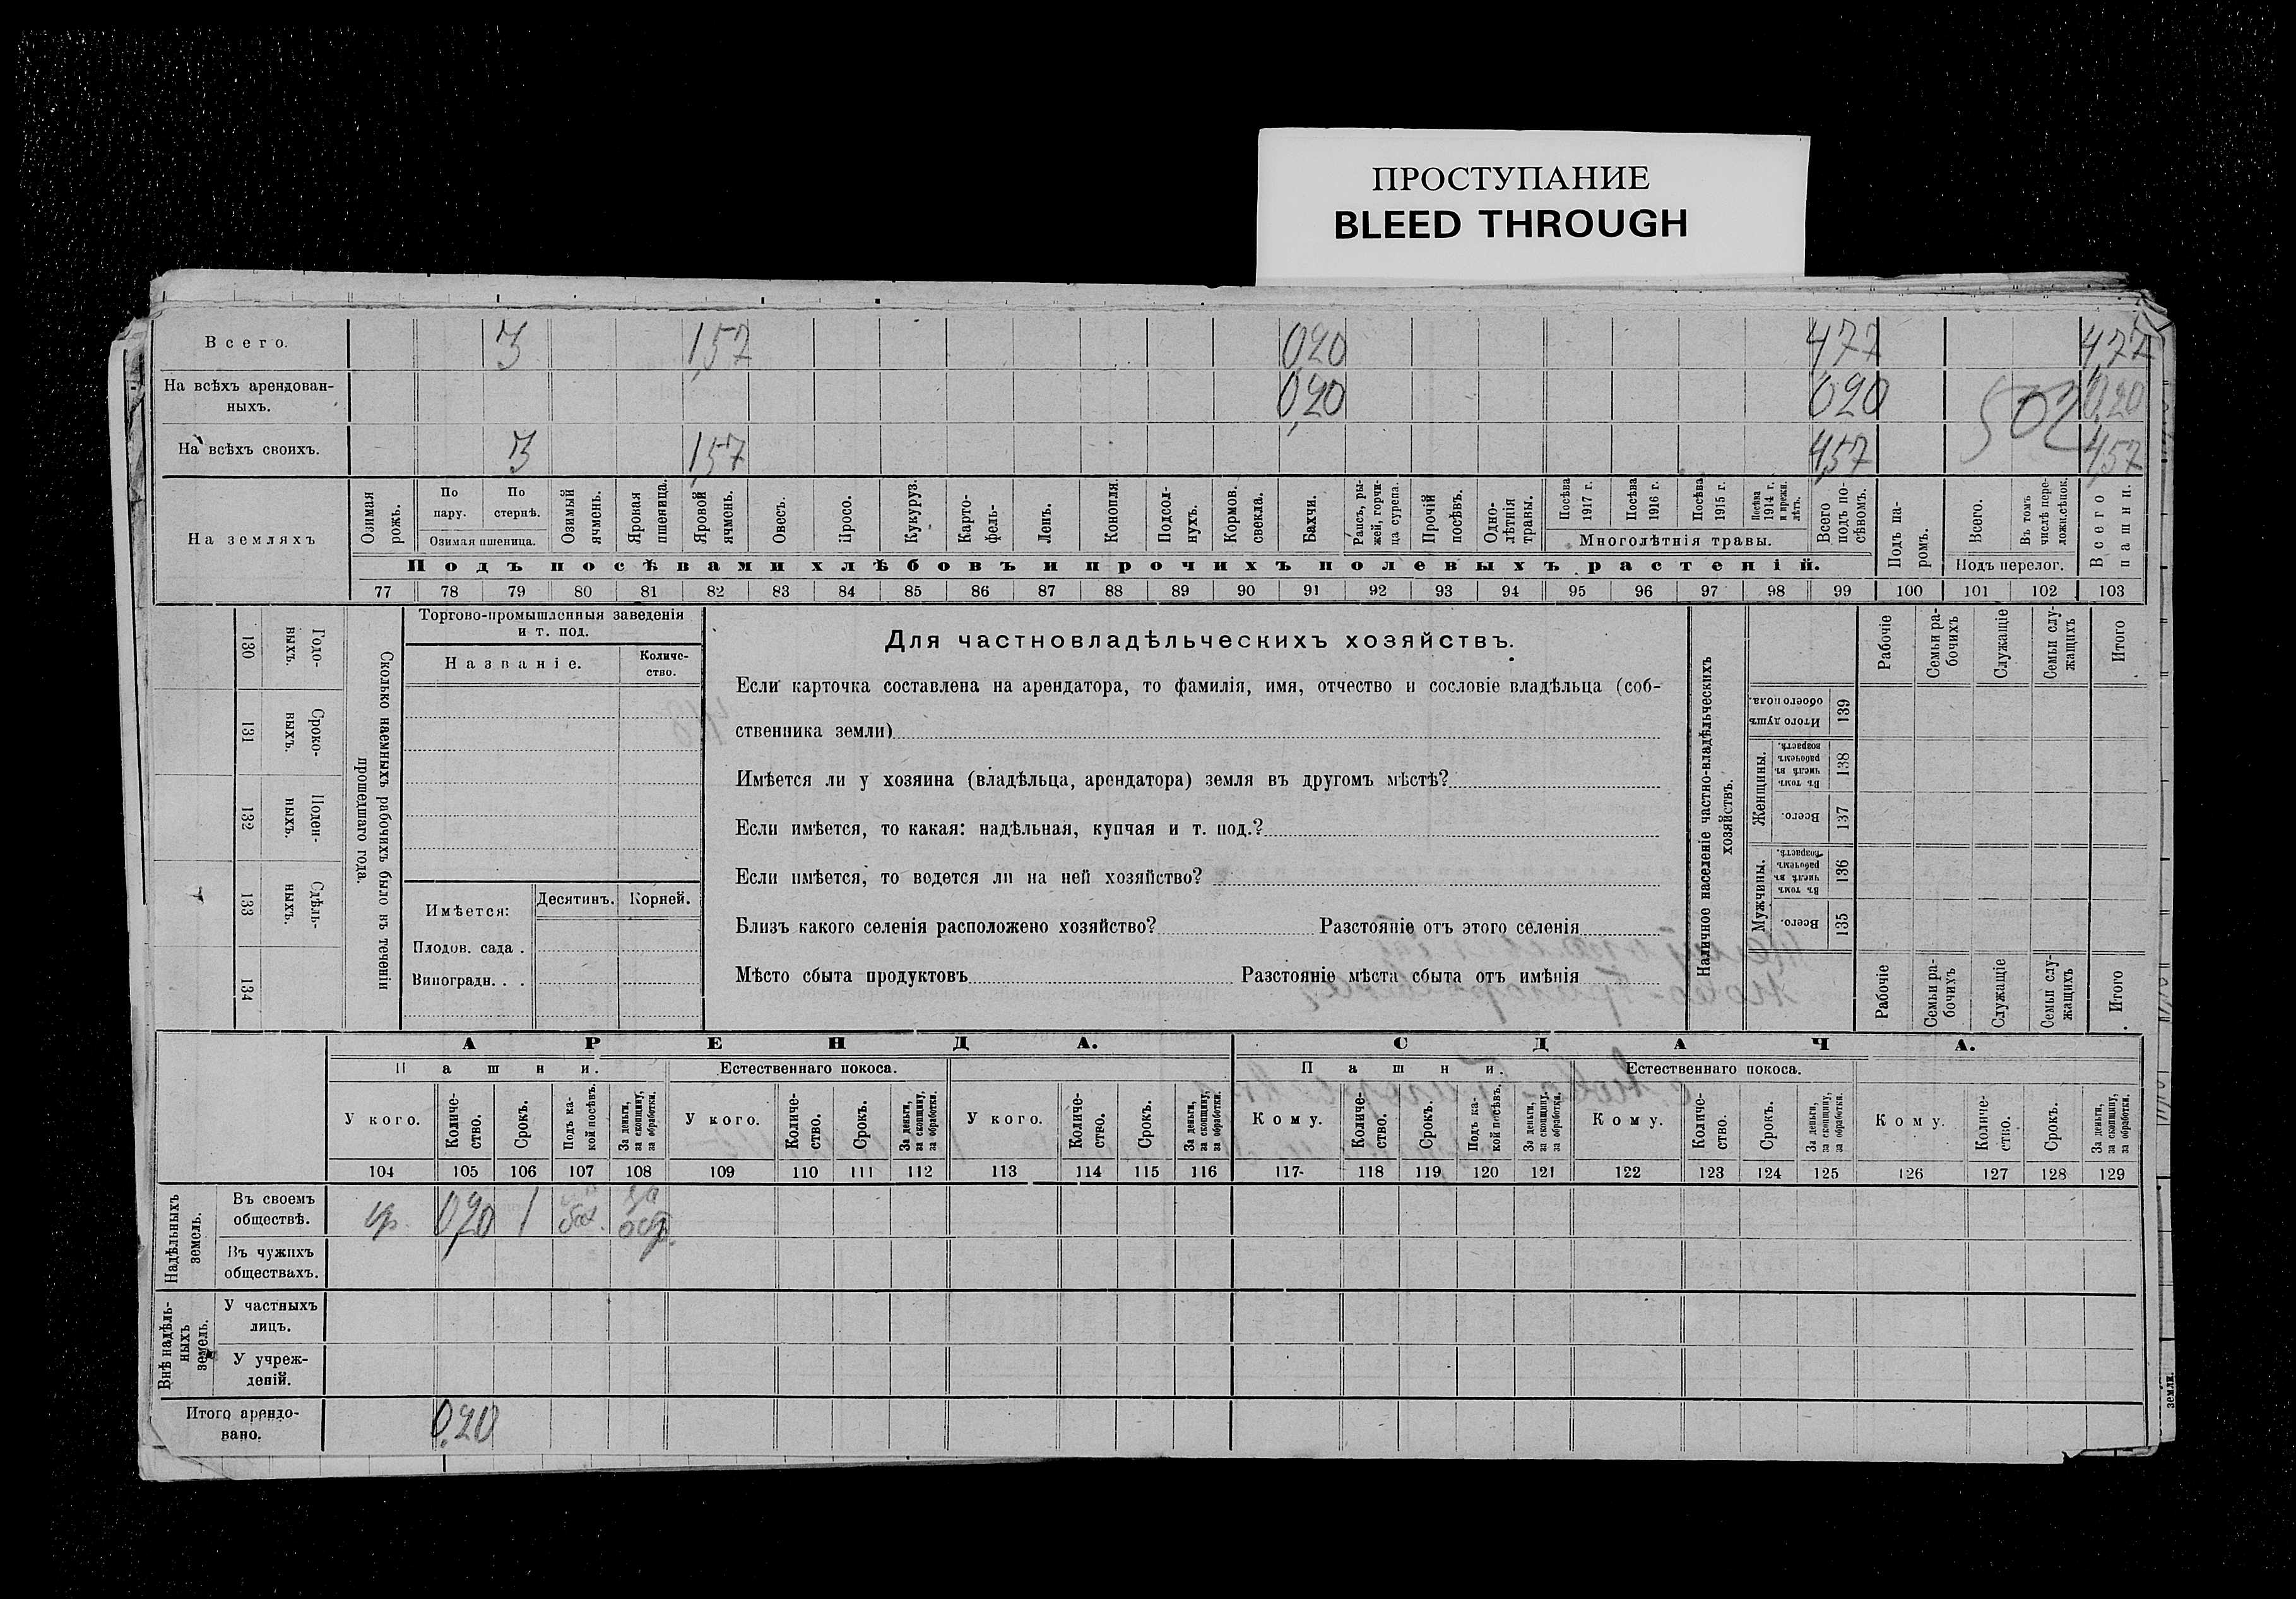 ПРОСТУПАНИЕ
BLEED THROUGH
Всего. 3 1,57 0,20 4,77 4,77
На всѣхъ арендован-
ныхъ. 0,20 0,20 502 0,20
На всѣхъ своихъ. 3 1,57 4,57 4,57
На земляхъ
Озимая рожь.
По пару.
По стернѣ.
Озимая пшеница.
Озимый ячмень.
Яровая пшеница.
Яровой ячмень.
Овесъ.
Просо.
Кукуруз.
Карто-
фель.
Ленъ.
Конопля.
Подсол-
нухъ.
Кормов. свекла.
Бахчи.
Рапсъ, ры-
жей, горчи-
ца сурепа.
Прочій посѣвъ.
Одно-
лѣтнія травы.
Посѣва 1917 г.
Посѣва 1916 г.
Посѣва 1915 г.
Посѣва 1914 г. и прежн. лѣтъ.
Многолѣтнія травы.
Всего подъ по-
сѣвомъ.
Подъ па-
ромъ.
Всего.
Въ томъ числѣ пере-
ложн. сѣнок.
Подъ перелог.
Всего пашни.
Подъ посѣвами хлѣбовъ и прочихъ полевыхъ растеній.
77 78 79 80 81 82 83 84 85 86 87 88 89 90 91 92 93 94 95 96 97 98 99 100 101 102 103
130 Годо-
ныхъ.
131 Сроко-
ныхъ.
132 Поден-
ныхъ.
133 Сдѣль-
ныхъ.
134
Сколько наемныхъ рабочихъ было въ теченіи
прошедшаго года.
Торгово-промышленныя заведенія
и т. под.
Названіе.
Количе-
ство.
Имѣется:
Десятинъ. Корней.
Плодов. сада .
Виноградн. . .
Для частновладѣльческихъ хозяйствъ.
Если карточка составлена на арендатора, то фамилія, имя, отчество и сословіе владѣльца (соб-
ственника земли)
Имѣется ли у хозяина (владѣльца, арендатора) земля въ другомъ мѣстѣ?
Если имѣется, то какая: надѣльная, купчая и т. под.?
Если имѣется, то ведется ли на ней хозяйство?
Близъ какого селенія расположено хозяйство? Разстояніе отъ этого селенія
Мѣсто сбыта продуктовъ Разстояніе мѣста сбыта отъ имѣнія
Наличное населеніе частно-владѣльческихъ
хозяйствъ.
Рабочіе
Семьи ра-
бочихъ
Служащіе
Семьи слу-
жащихъ
Итого
Итого душъ обоего пола. 139
Женщины.
Въ томъ числѣ въ рабочемъ возрастѣ. 138
Всего. 137
Мужчины.
Въ томъ числѣ въ рабочемъ возрастѣ. 136
Всего. 135
Рабочіе
Семьи ра-
бочихъ
Служащіе
Семьи слу-
жащихъ
Итого
АРЕНДА. СДАЧА.
Пашни. Естественнаго покоса. Пашни. Естественнаго покоса.
У кого.
Количе-
ство.
Срокъ.
Подъ ка-
кой посѣвъ.
За деньги, за скопщину, за обработки.
У кого.
Количе-
ство.
Срокъ.
За деньги, за скопщину, за обработки.
У кого.
Количе-
ство.
Срокъ.
За деньги, за скопщину, за обработки.
Кому.
Количе-
ство.
Срокъ.
Подъ ка-
кой посѣвъ.
За деньги, за скопщину, за обработки.
Кому.
Количе-
ство.
Срокъ.
За деньги, за скопщину, за обработки.
Кому.
Количе-
ство.
Срокъ.
За деньги, за скопщину, за обработки.
104 105 106 107 108 109 110 111 112 113 114 115 116 117 118 119 120 121 122 123 124 125 126 127 128 129
Надѣльныхъ
земель.
Въ своемъ
обществѣ. 0,20 1 бах. за
обр.
Въ чужихъ
обществахъ.
Внѣ надѣль-
ныхъ
земель.
У частныхъ
лицъ.
У учреж-
деній.
Итого арендо-
вано. 0,20
земли.